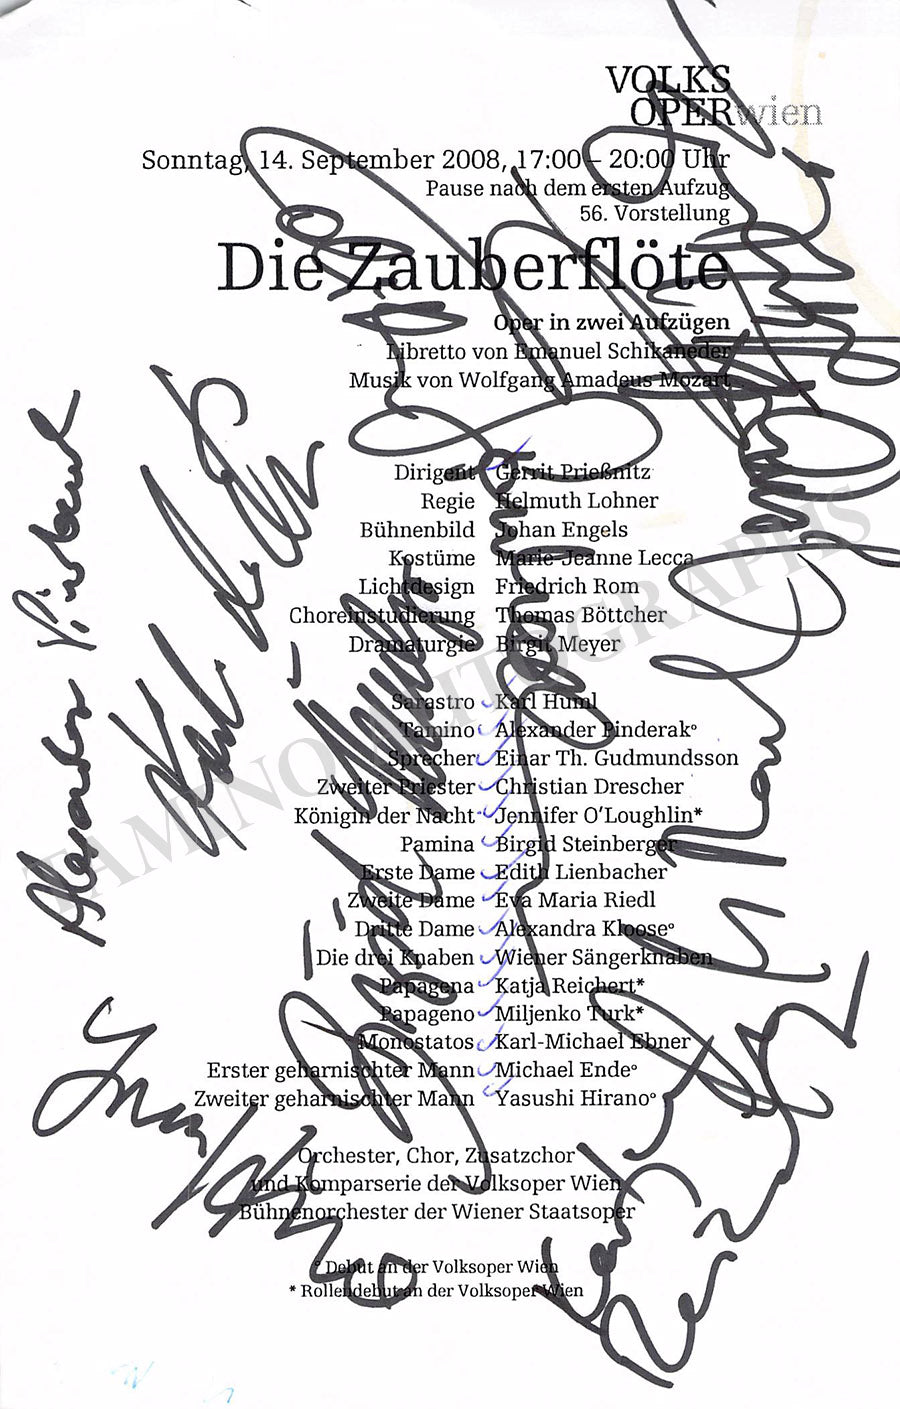 VOLKS
OPERwien
Sonntag, 14. September 2008, 17:00 – 20:00 Uhr
Pause nach dem ersten Aufzug
56. Vorstellung
Die Zauberflöte
Oper in zwei Aufzügen
Libretto von Emanuel Schikaneder
Musik von Wolfgang Amadeus Mozart
Dirigent Gerrit Prießnitz
Regie Helmuth Lohner
Bühnenbild Johan Engels
Kostüme Marie-Jeanne Lecca
Lichtdesign Friedrich Rom
Choreinstudierung Thomas Böttcher
Dramaturgie Birgit Meyer
Sarastro Karl Huml
Tamino Alexander Pinderak°
Sprecher Einar Th. Gudmundsson
Zweiter Priester Christian Drescher
Königin der Nacht Jennifer O'Loughlin*
Pamina Birgid Steinberger
Erste Dame Edith Lienbacher
Zweite Dame Eva Maria Riedl
Dritte Dame Alexandra Kloose°
Die drei Knaben Wiener Sängerknaben
Papagena Katja Reichert*
Papageno Miljenko Turk*
Monostatos Karl-Michael Ebner
Erster geharnischter Mann Michael Ende°
Zweiter geharnischter Mann Yasushi Hirano°
Orchester, Chor, Zusatzchor
und Komparserie der Volksoper Wien
Bühnenorchester der Wiener Staatsoper
° Debut an der Volksoper Wien
* Rollendebut an der Volksoper Wien
Alexander Pinderak
TAMINO AUTOGRAPHS